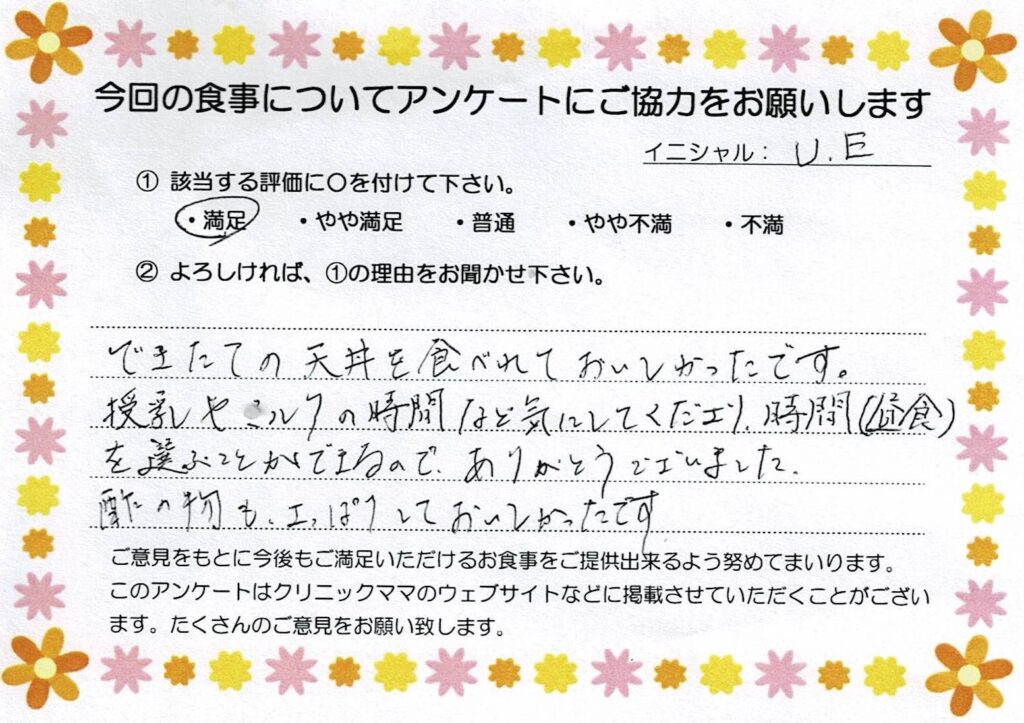 今回の食事についてアンケートにご協力をお願いします
イニシャル： U.E
① 該当する評価に〇を付けて下さい。
・満足 ・やや満足 ・普通 ・やや不満 ・不満
② よろしければ、①の理由をお聞かせ下さい。
できたての天丼を食べれておいしかったです。
授乳やミルクの時間など気にしてくださり、時間(昼食)
を選ぶことができるので、ありがとうございました。
酢の物も、さっぱりしておいしかったです
ご意見をもとに今後もご満足いただけるお食事をご提供出来るよう努めてまいります。
このアンケートはクリニックママのウェブサイトなどに掲載させていただくことがござい
ます。たくさんのご意見をお願い致します。